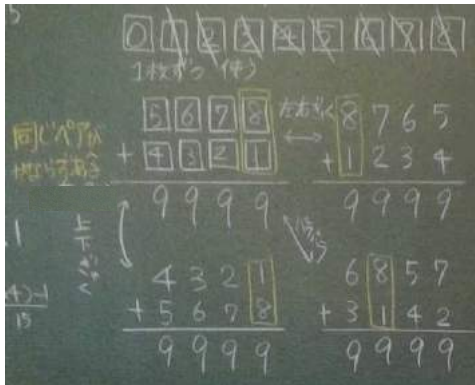 0 1 2 3 4 5 6 7 8
1枚ずつ使う
5 6 7 8
+ 4 3 2 1
9 9 9 9
左右ぎゃく
8 7 6 5
+ 1 2 3 4
9 9 9 9
同じペアが
上下ぎゃく
4 3 2 1
+ 5 6 7 8
9 9 9 9
6 8 5 7
+ 3 1 4 2
9 9 9 9
15